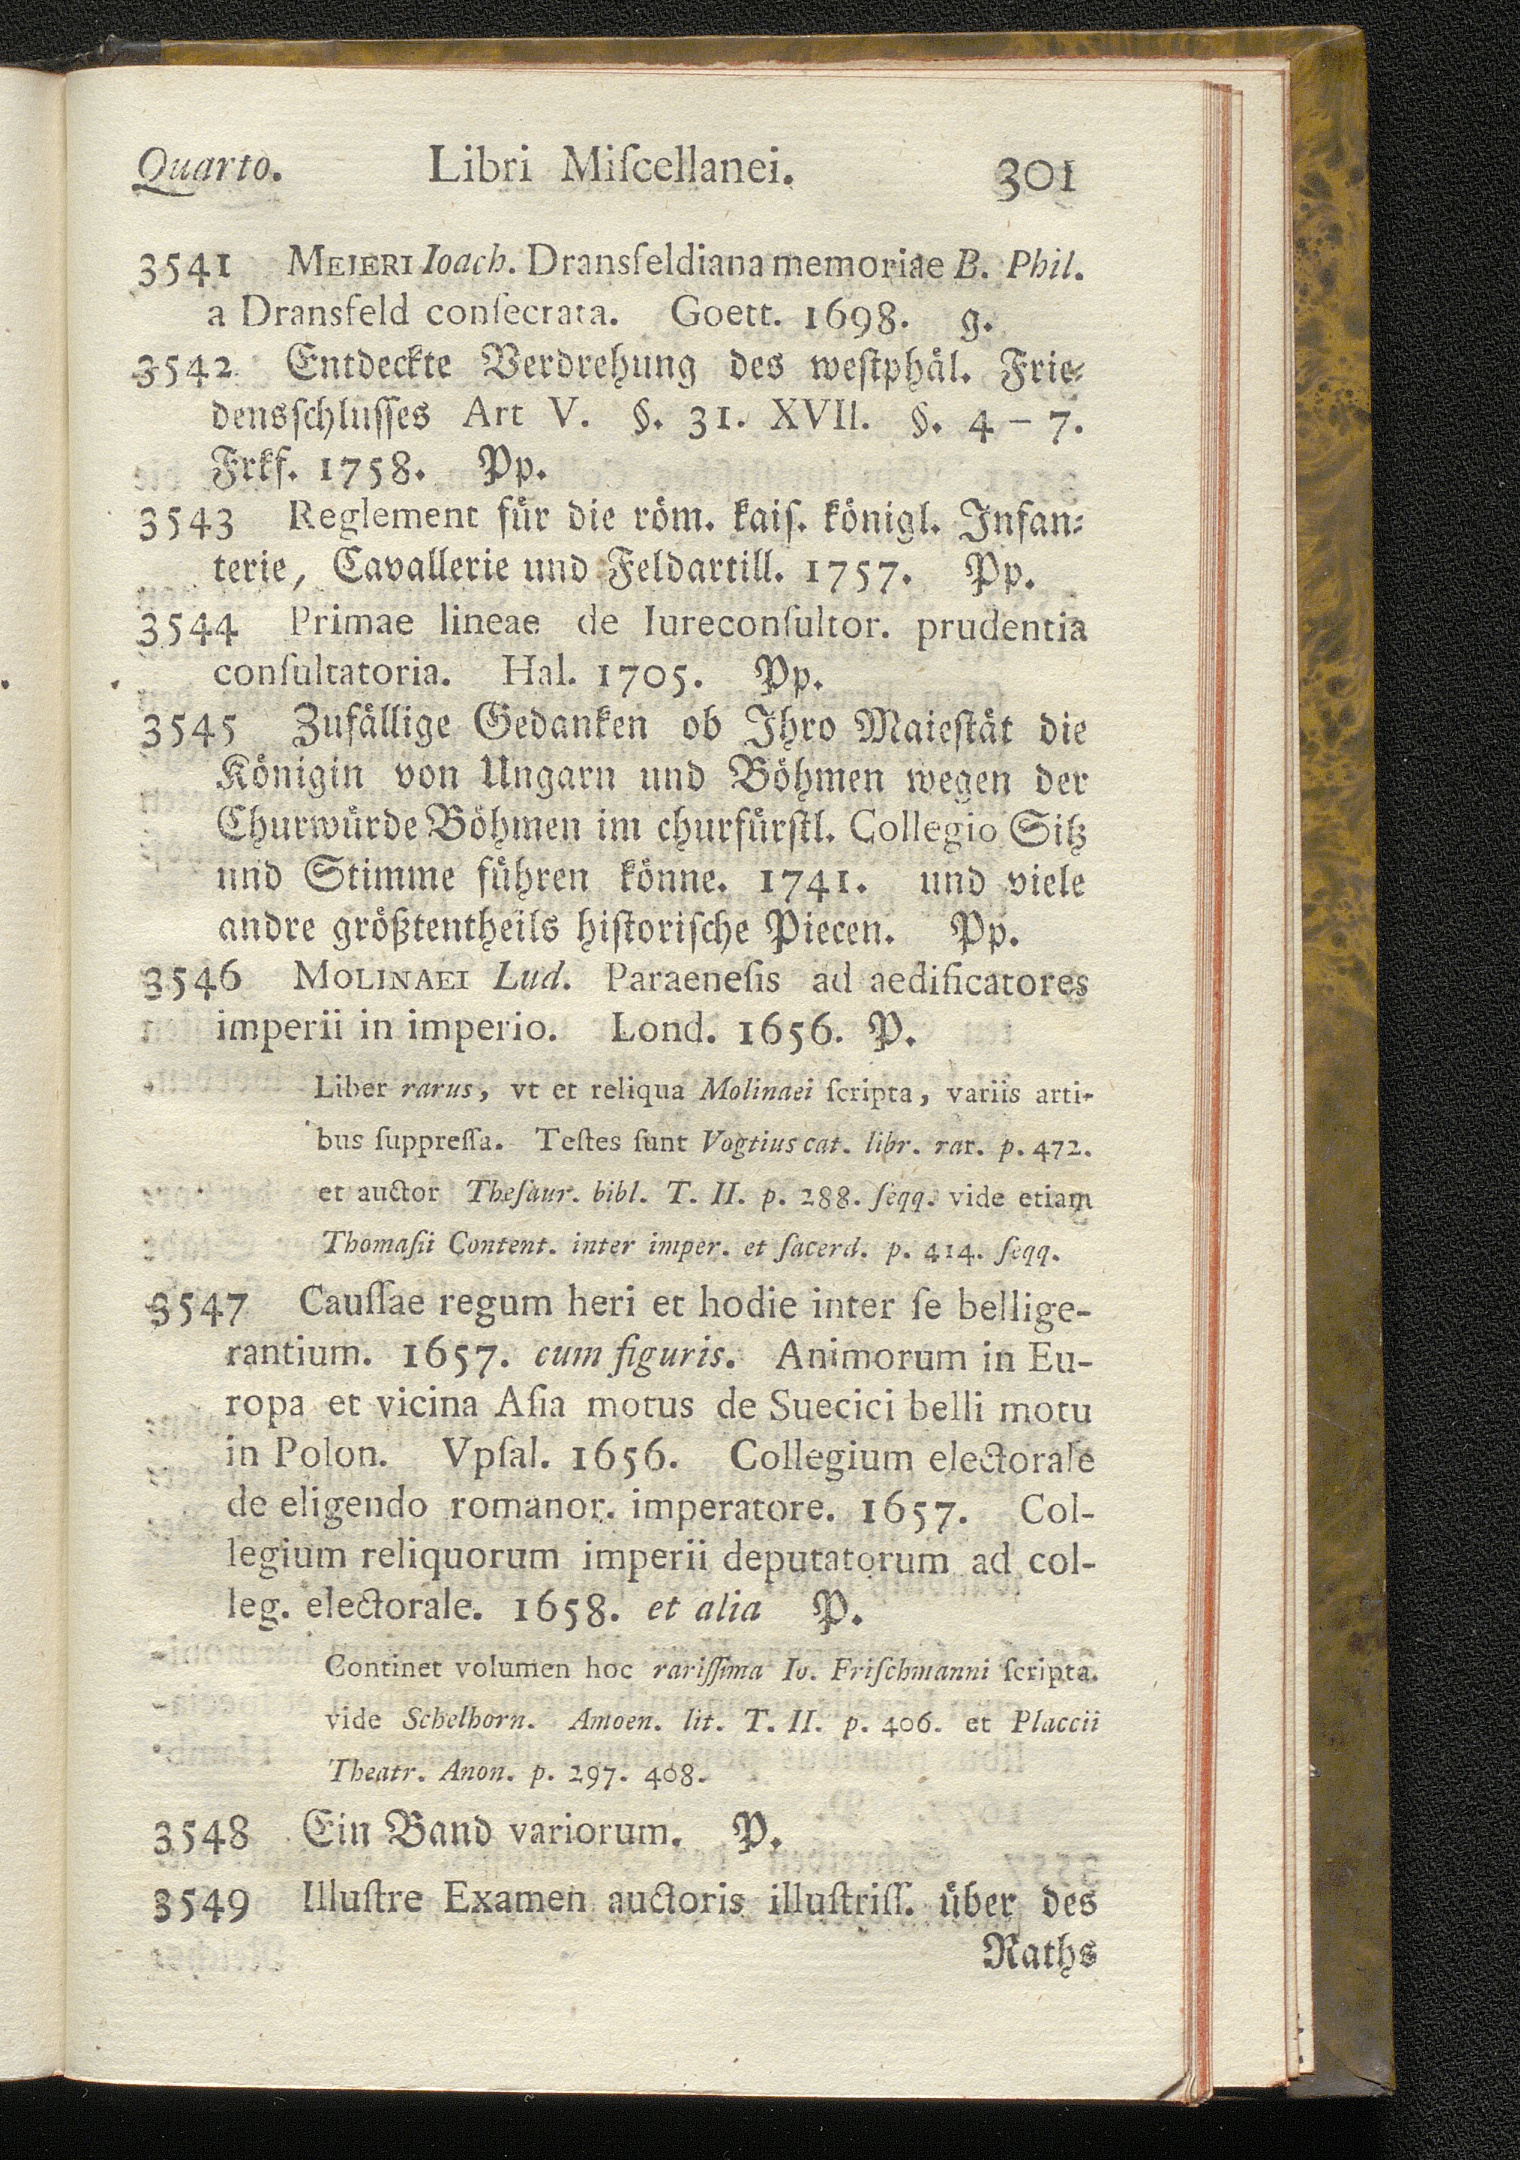 Quarto. Libri Miſcellanei. 301
3541 MEIERI Ioach. Dransfeldiana memoriae B. Phil.
a Dransfeld conſecrata. Goett. 1698. g.
3542 Entdeckte Verdrehung des weſtphäl. Frie-
densſchluſſes Art V. §. 31. XVII. §. 4 – 7.
Frkf. 1758. Pp.
3543 Reglement für die röm. kaiſ. königl. Infan-
terie, Cavallerie und Feldartill. 1757. Pp.
3544 Primae lineae de Iureconſultor. prudentia
conſultatoria. Hal. 1705. Pp.
3545 Zufällige Gedanken ob Ihro Maieſtät die
Königin von Ungarn und Böhmen wegen der
Churwürde Böhmen im churfürſtl. Collegio Sitz
und Stimme führen könne. 1741. und viele
andre größtentheils hiſtoriſche Piecen. Pp.
3546 MOLINAEI Lud. Paraeneſis ad aedificatores
imperii in imperio. Lond. 1656. P.
Liber rarus, vt et reliqua Molinaei ſcripta, variis arti-
bus ſuppreſſa. Teſtes ſunt Vogtius cat. libr. rar. p. 472.
et auctor Theſaur. bibl. T. II. p. 288. ſeqq. vide etiam
Thomaſii Content. inter imper. et ſacerd. p. 414. ſeqq.
3547 Cauſſae regum heri et hodie inter ſe bellige-
rantium. 1657. cum figuris. Animorum in Eu-
ropa et vicina Aſia motus de Suecici belli motu
in Polon. Vpſal. 1656. Collegium electorale
de eligendo romanor. imperatore. 1657. Col-
legium reliquorum imperii deputatorum ad col-
leg. electorale. 1658. et alia P.
Continet volumen hoc rariſſima Io. Friſchmanni ſcripta.
vide Schelhorn. Amoen. lit. T. II. p. 406. et Placcii
Theatr. Anon. p. 297. 408.
3548 Ein Band variorum. P.
3549 Illuſtre Examen auctoris illuſtriſſ. über des
Raths